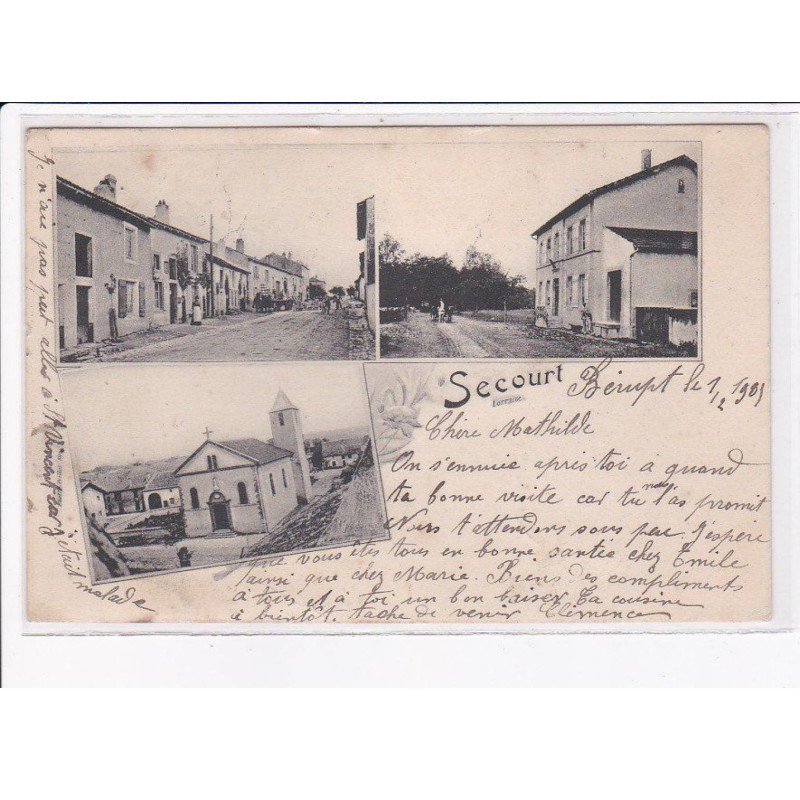 Secourt
Lorraine
Bérupt le 1/2 1905
Chère Mathilde
On s'ennuie après toi à quand
ta bonne visite car tu nous l'as promit
Nous t'attendons sous peu. J'espère
que vous êtes tous en bonne santée chez Emile
ainsi que chez Marie. Biens des compliments
à tous et à toi un bon baiser Ta cousine
à bientôt. tache de venir Clémence
Je n'aie pas peut aller à St Vincent car j'était
malade